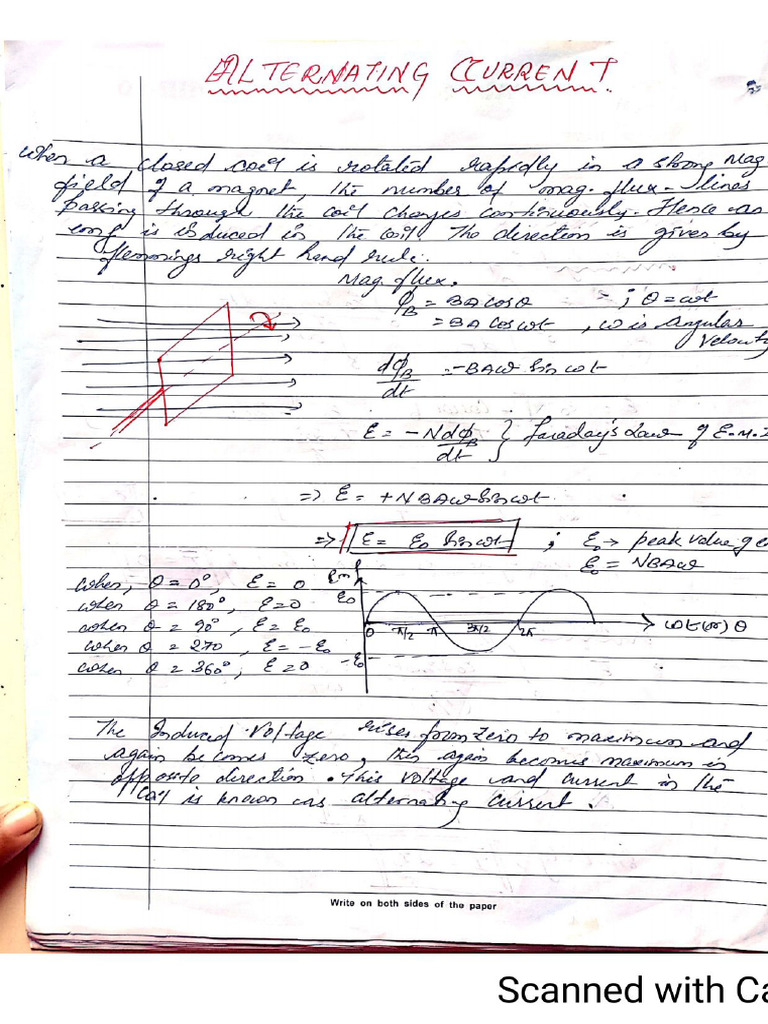 ALTERNATING CURRENT
When a closed coil is rotated rapidly in a strong Mag
field of a magnet, the number of mag. flux-lines
passing through the coil changes continuously. Hence an
emf is induced in the coil. The direction is given by
flemmings right hand rule.
Mag. flux.
ϕB = BA cosθ ; θ = ωt
= BA cosωt , ω is angular
velocity
dϕB/dt = -BAω sin ωt
ε = -N dϕB/dt } faraday's Law of E.M.I
=> ε = +NBAω sinωt.
=> ε = ε₀ sinωt ; ε₀ → peak value of e
ε₀ = NBAω
when, θ = 0°, ε = 0
when θ = 180°, ε = 0
when θ = 90°, ε = ε₀
when θ = 270, ε = -ε₀
when θ = 360°, ε = 0
emf
ε₀
0 π/2 π 3π/2 2π ωt (or) θ
-ε₀
The Induced Voltage rises from zero to maximum and
again becomes zero, then again becomes maximum in
opposite direction. This voltage and current in the
coil is known as alternating current.
Write on both sides of the paper
Scanned with Ca